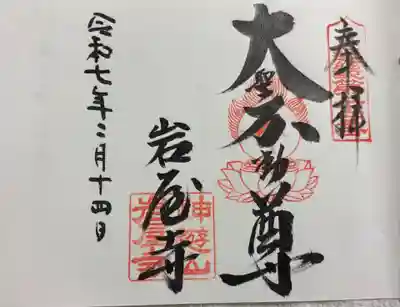 奉拝
大聖不動尊
岩屋寺
令和七年二月十四日
神遊山
岩屋寺